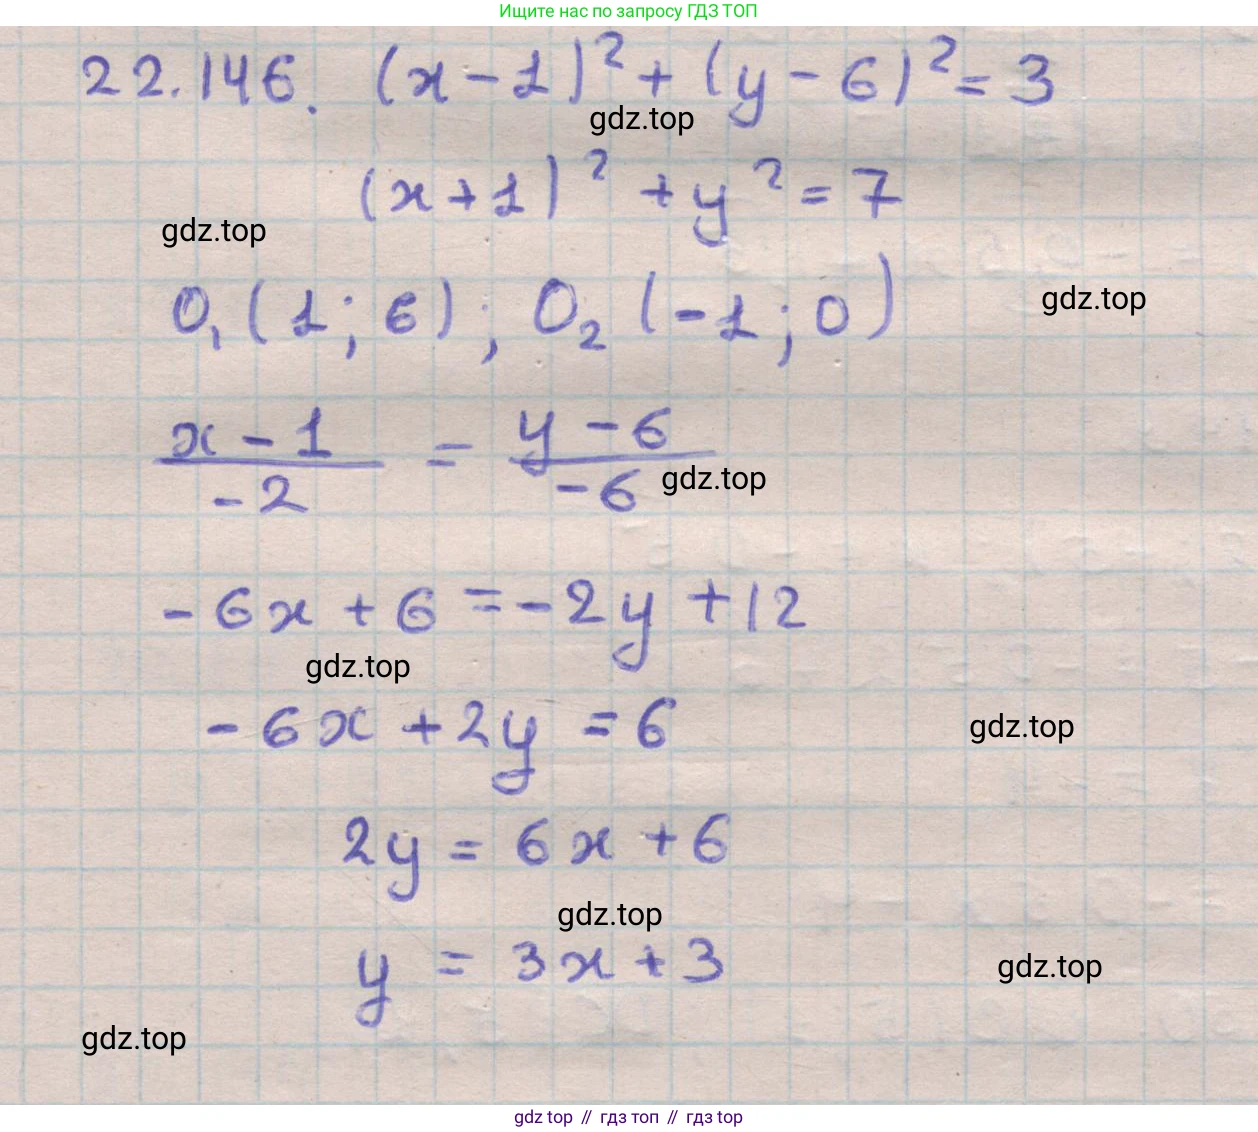 Ищите нас по запросу ГДЗ ТОП
22.146. (x-1)²+(y-6)²=3
gdz.top
(x+1)²+y²=7
gdz.top
O₁(1;6); O₂(-1;0)
gdz.top
(x-1)/(-2) = (y-6)/(-6)
gdz.top
-6x+6=-2y+12
gdz.top
-6x+2y=6
gdz.top
2y=6x+6
gdz.top
y=3x+3
gdz.top
gdz.top
gdz top // гдз топ // gdz top